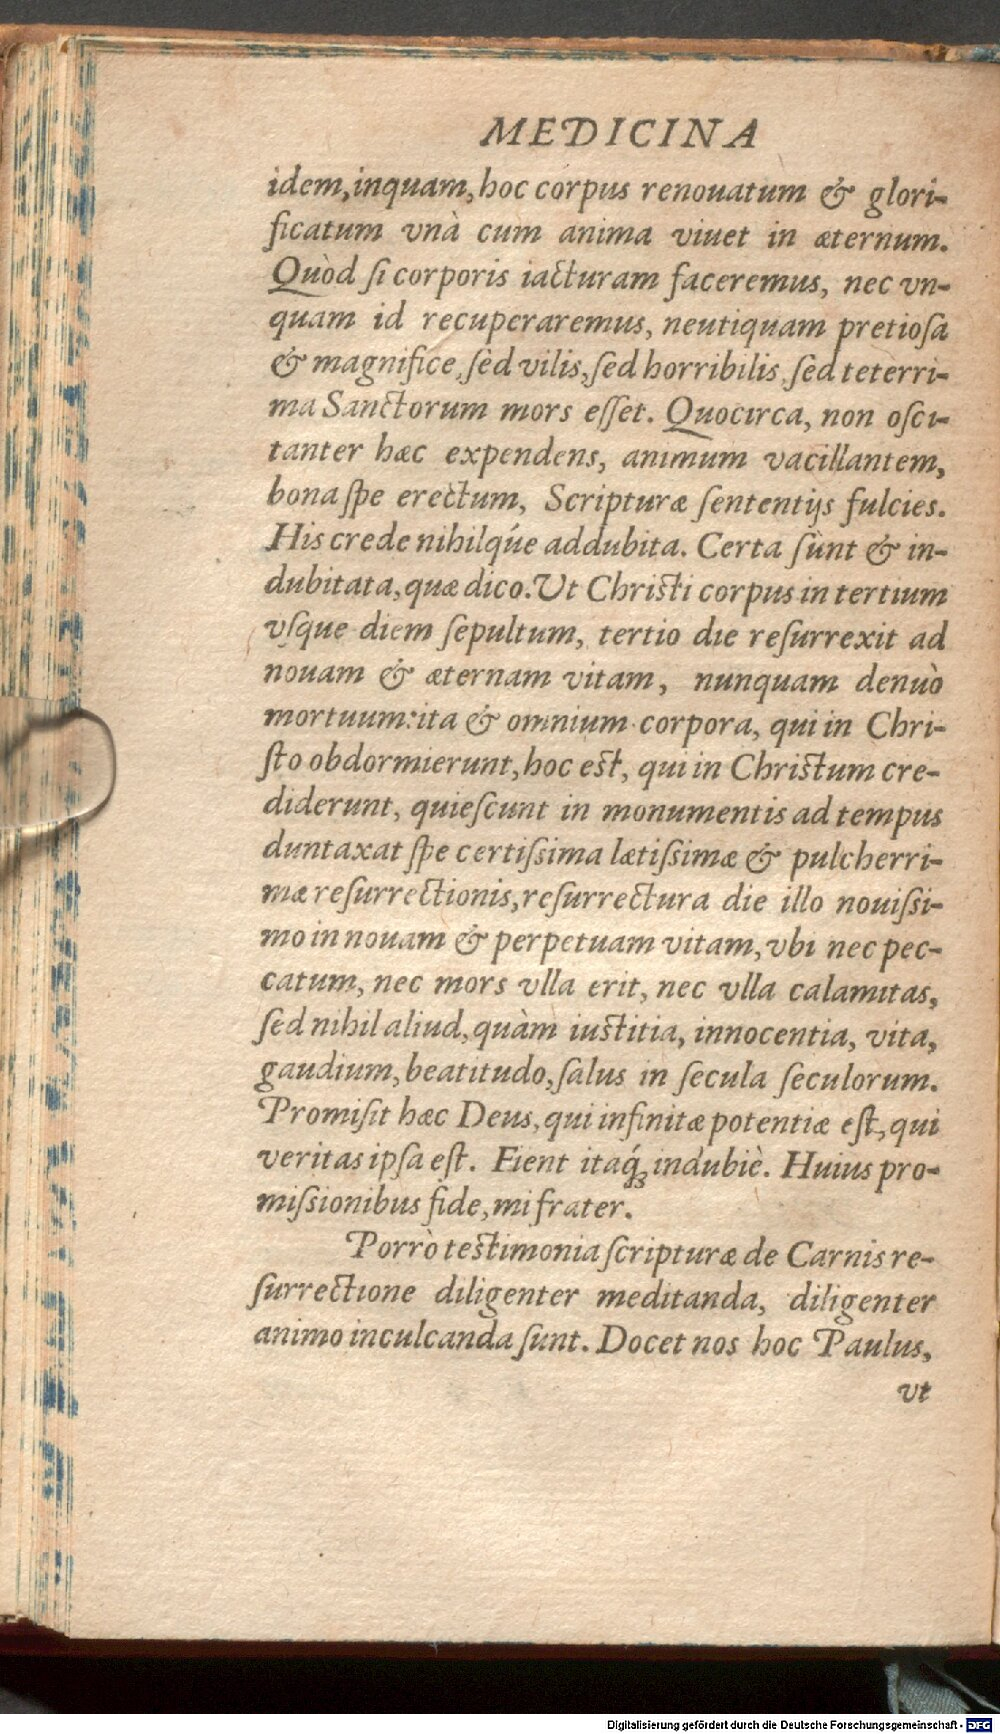 MEDICINA
idem, inquam, hoc corpus renouatum & glori-
ficatum vnà cum anima viuet in æternum.
Quòd ſi corporis iacturam faceremus, nec vn-
quam id recuperaremus, neutiquam pretioſa
& magnifice, ſed vilis, ſed horribilis, ſed teterri-
ma Sanctorum mors eſſet. Quocirca, non oſci-
tanter hæc expendens, animum vacillantem,
bona ſpe erectum, Scripturæ ſententijs fulcies.
His crede nihilqúe addubita. Certa ſunt & in-
dubitata, quæ dico. Ut Chriſti corpus in tertium
vſque diem ſepultum, tertio die reſurrexit ad
nouam & æternam vitam, nunquam denuò
mortuum: ita & omnium corpora, qui in Chri-
ſto obdormierunt, hoc eſt, qui in Chriſtum cre-
diderunt, quieſcunt in monumentis ad tempus
duntaxat ſpe certiſsima lætiſsimæ & pulcherri-
mæ reſurrectionis, reſurrectura die illo nouiſsi-
mo in nouam & perpetuam vitam, vbi nec pec-
catum, nec mors vlla erit, nec vlla calamitas,
ſed nihil aliud, quàm iuſtitia, innocentia, vita,
gaudium, beatitudo, ſalus in ſecula ſeculorum.
Promiſit hæc Deus, qui infinitæ potentiæ eſt, qui
veritas ipſa eſt. Fient itaq́ꝫ indubiè. Huius pro-
miſsionibus fide, mi frater.
Porrò teſtimonia ſcripturæ de Carnis re-
ſurrectione diligenter meditanda, diligenter
animo inculcanda ſunt. Docet nos hoc Paulus,
vt
Digitalisierung gefördert durch die Deutsche Forschungsgemeinschaft - DFG